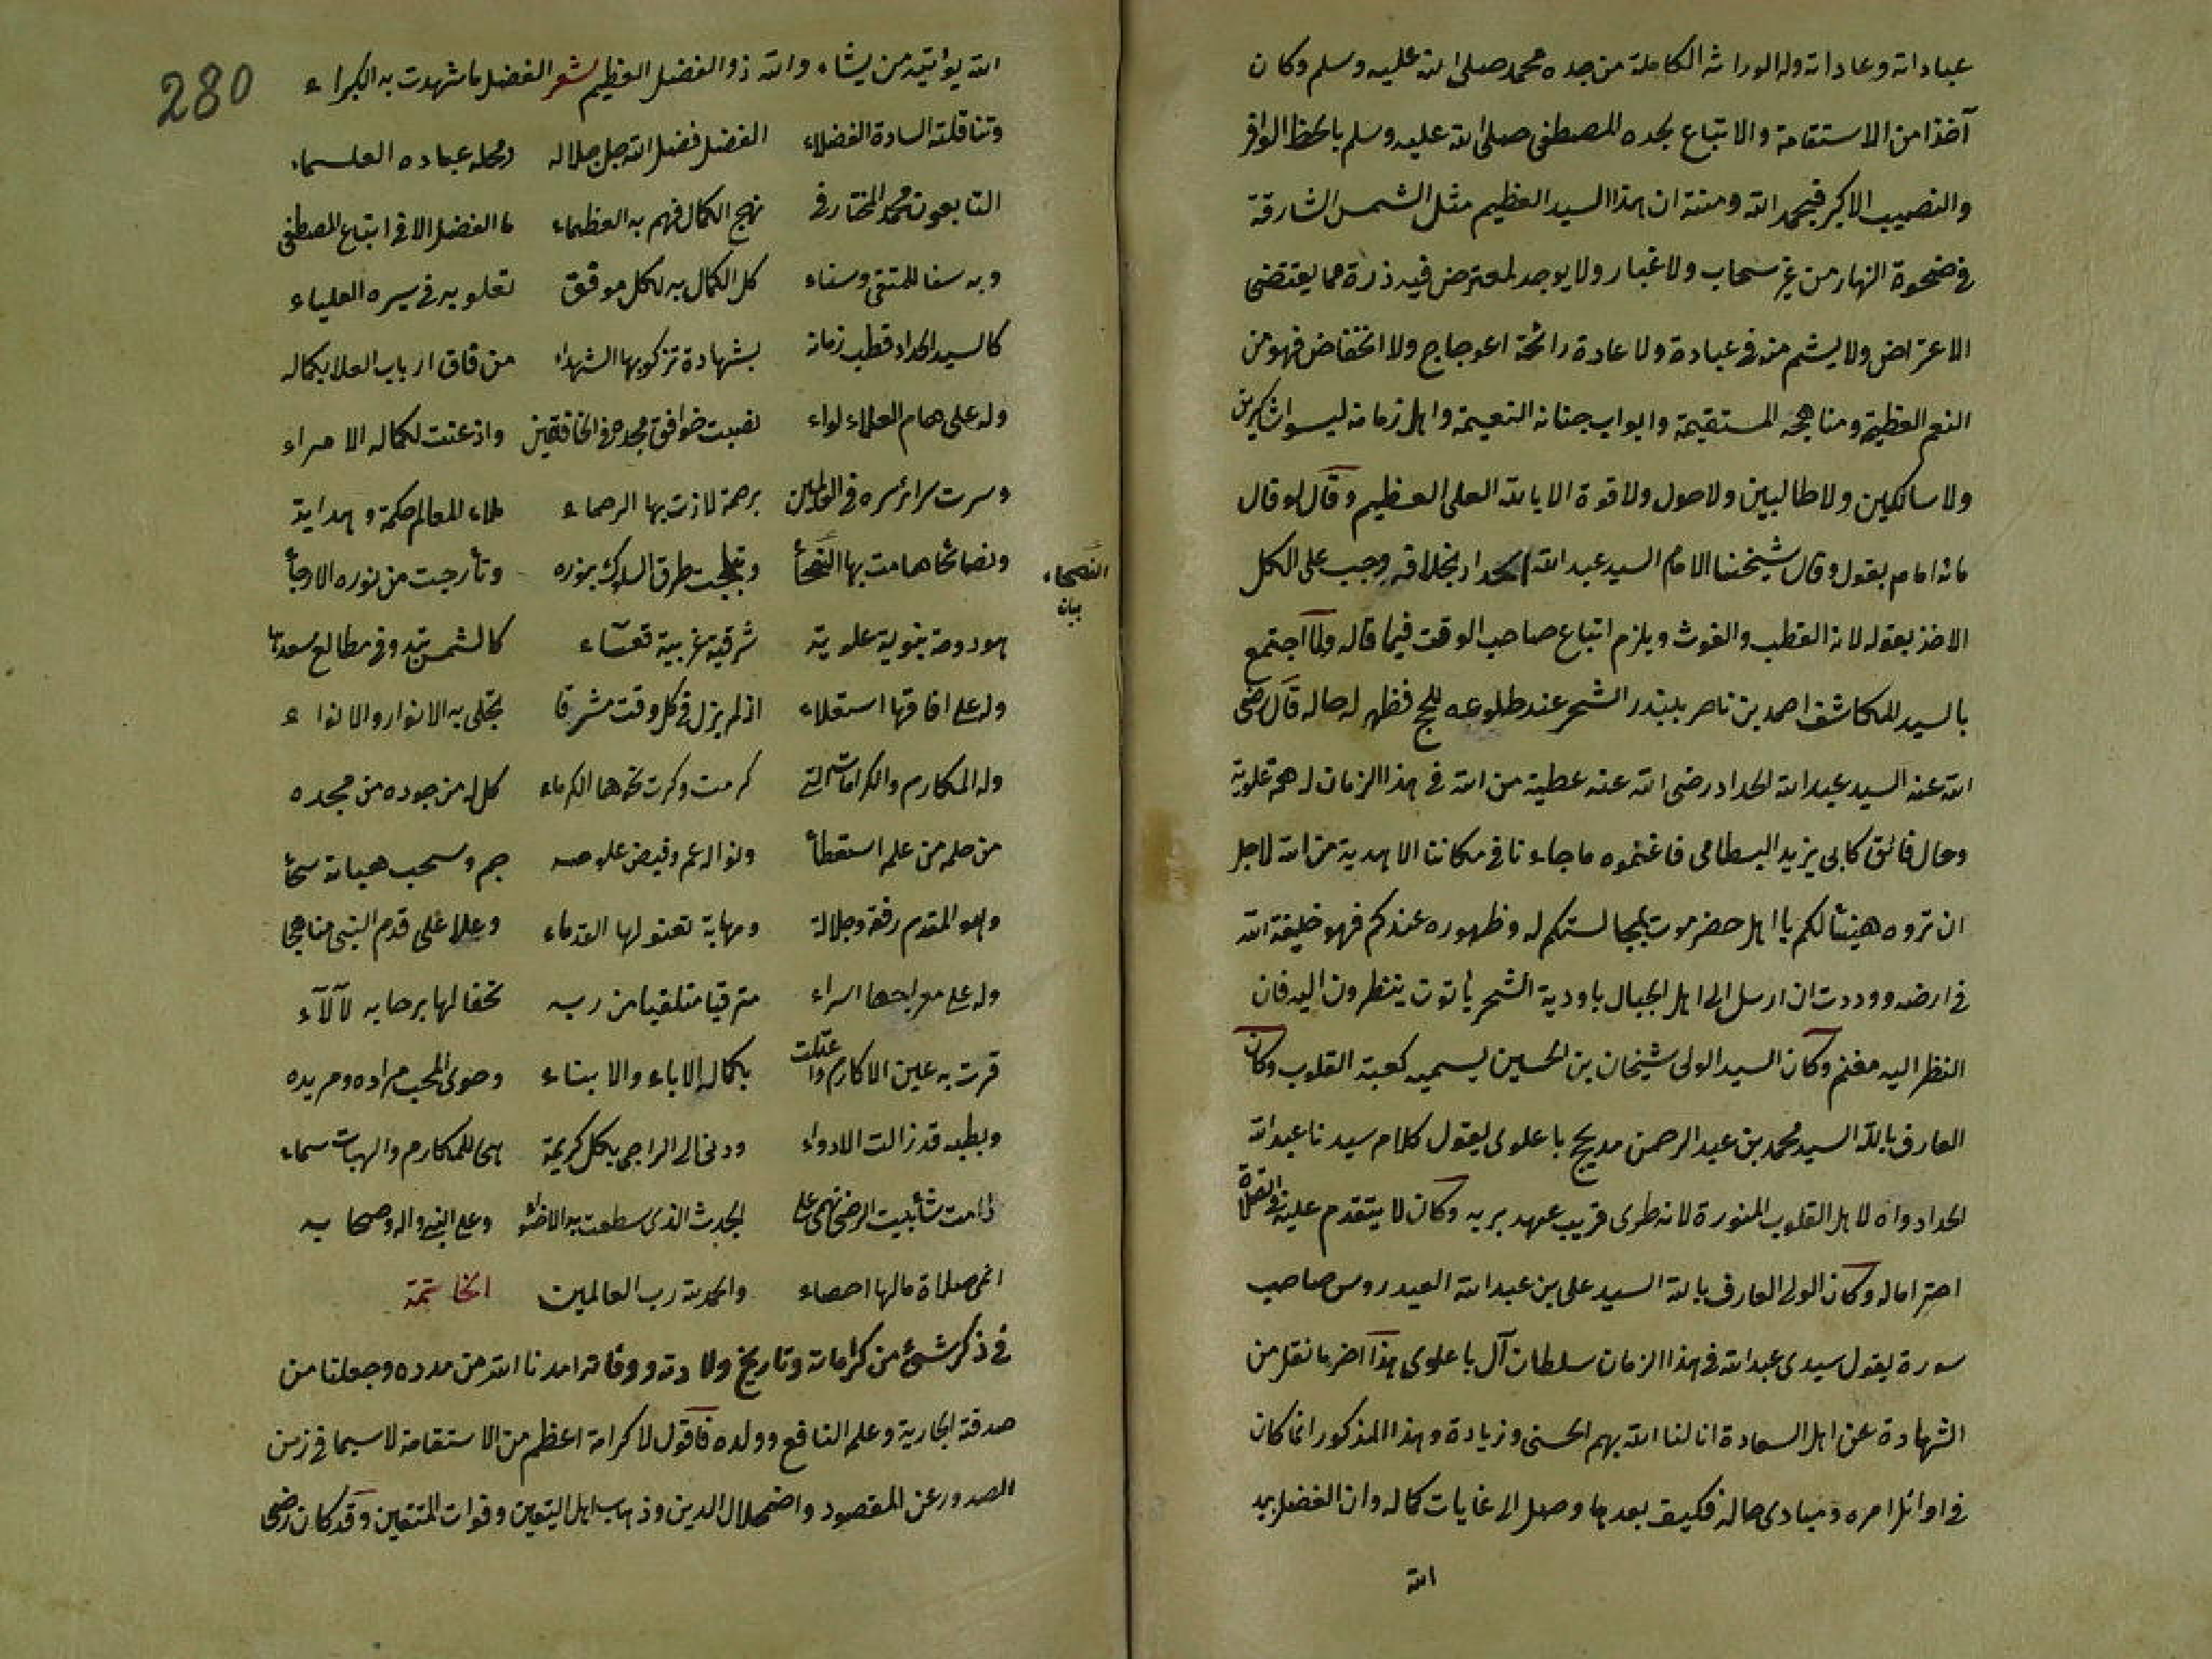 عباداته وعاداته وله الوراثة الكاملة من جده محمد صلى الله عليه وسلم وكان
آخذا من الاستقامة والاتباع لجده المصطفى صلى الله عليه وسلم بالحظ الوافر
والنصيب الاكبر فبحمد الله ومنته ان هذا السيد العظيم مثل الشمس الشارقة
في ضحوة النهار من غير سحاب ولا غبار ولا يوجد لمعترض فيه ذرة مما يقتضى
الاعتراض ولا يشم منه في عبادة ولا عادة رائحة اعوجاج ولا انخفاض فهو من
النعم العظيمة ومناهجه المستقيمة وابواب جنانه النعيمة واهل زمانه ليسوا شاكرين
ولا سالكين ولا طالبين ولا حول ولا قوة الا بالله العلى العظيم وقال لو قال
مائة امام بقول وقال شيخنا الامام السيد عبد الله الحداد بخلافه وجب على الكل
الاخذ بقوله لانه القطب والغوث ويلزم اتباع صاحب الوقت فيما قاله ولما اجتمع
بالسيد المكاشف احمد بن ناصر ببندر الشحر عند طلوعه للحج فظهر له حاله قال رضى
الله عنه السيد عبد الله الحداد رضى الله عنه عطية من الله في هذا الزمان له همة علوية
وحال فائق كابى يزيد البسطامى فاغنموه ما جاءنا في مكاننا الا هدية من الله لاجل
ان تروه هنيئا لكم يا اهل حضرموت بمجالستكم له وظهوره عندكم فهو خليفة الله
في ارضه ووددت ان ارسل الى اهل الجبال باودية الشحر ياتون ينظرون اليه فان
النظر اليه مغنم وكان السيد الولى شيخان بن الحسين يسميه كعبة القلوب وكان
العارف بالله السيد محمد بن عبد الرحمن مديحج باعلوى يقول كلام سيدنا عبد الله
الحداد دواء لاهل القلوب المنورة لانه طرى قريب عهد بربه وكان لا يتقدم عليه في الصلاة
احتراما له وكان الولى العارف بالله السيد على بن عبد الله العيدروس صاحب
سورة يقول سيدى عبد الله في هذا الزمان سلطان آل باعلوى هذا اخر ما نقل من
الشهادة عن اهل السعادة انالنا الله بهم الحسنى وزيادة وهذا المذكور انما كان
في اوائل امره ومبادى حاله فكيف بعد ما وصل الى غايات كماله وان الفضل بيد
الله
280
الله يؤتيه من يشاء والله ذو الفضل العظيم شعر الفضل ما شهدت به الكبراء
وتناقلته السادة الفضلاء الفضل فضل الله جل جلاله ومحله عباده العلماء
التابعون محمد المختار في نهج الكمال فهم به العظماء ما الفضل الا في اتباع المصطفى
وبه سنا للمتقى وسناء كل الكمال به لكل موفق تعلو به في سيره العلياء
كالسيد الحداد قطب زمانه بشهادة تزكو بها الشهداء من فاق ارباب العلا بكماله
وله على هام العلاء لواء نصبت خوافق مجده في الخافقين واذعنت لكماله الامراء
وسرت سرائر سره في العالمين برحمة لاذت بها الرحماء ملاء للعالم حكمة وهداية
ونصائحا هامت بها النصحأ وتبلجت طرق السلوك بنوره وتأرجت من نوره الارجأ
النصحاء
بيان
هو دوحة نبوية علوية شرقية غربية قعساء كالشمس تبدو في مطالع سعدها
وله على افاقها استعلاء اذ لم يزل في كل وقت مشرقا تجلى به الانوار والانواء
وله المكارم والكرامات التي كرمت وكرت نحوها الكرماء كل له من جوده من مجده
من حلمه من علمه استعطأ ونواله عم وفيض علومه جم وسحب هباته سحأ
وهو المقدم رفعة وجلالة ومهابة تعنو لها القدماء وعلا على قدم النبى مناهجا
وله على معراجها اسراء مترقيا متلقيا من ربه تحفا لها برحابه لآلآء
قرت به عين الاكارم واعتلت بكماله الاباء والابناء وحوى المحب مراده ومريده
وبطبه قد زالت الادواء ودنى الى الراجى بكل كريمة هى للمكارم والهبات سماء
دامت شأبيب الرضى تهمى على الجدث الذى سطعت به الاضواء وعلى النبى واله وصحابه
انمى صلاة مالها احصاء والحمد لله رب العالمين الخاتمة
في ذكر شئ من كراماته وتاريخ ولادته ووفاته امدنا الله من مدده وجعلنا من
صدقته الجارية وعلمه النافع وولده فاقول لا كرامة اعظم من الاستقامة لا سيما في زمن
الصدور عن المقصود واضمحلال الدين وذهاب اهل اليقين وفوات المتقين وقد كان رضى